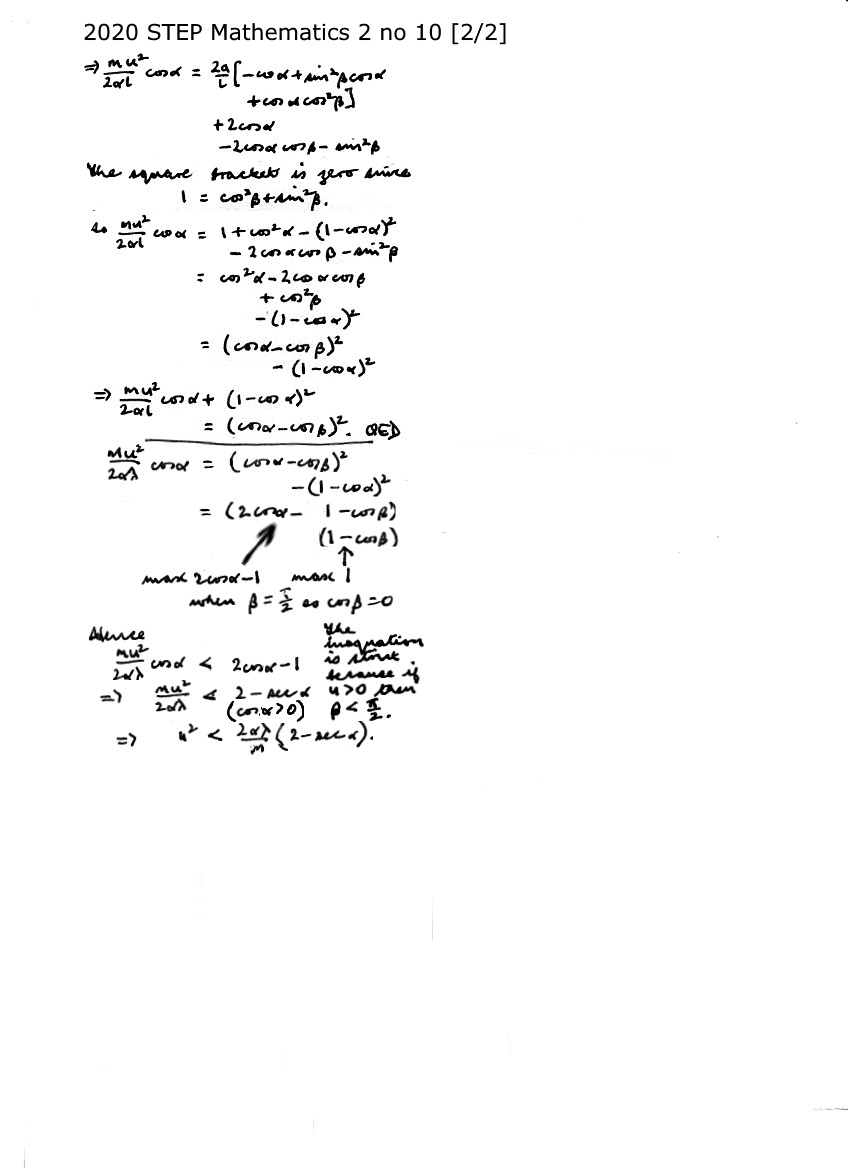 2020 STEP Mathematics 2 no 10 [2/2]
⇒ mu²/2αl cosα = 2a/l [-cosα + sin²β cosα
+ cosα cos²β]
+ 2cosα
- 2cosα cosβ - sin²β
The square brackets is zero since
1 = cos²β + sin²β.
So mu²/2αl cosα = 1 + cos²α - (1-cosα)²
- 2cosα cosβ - sin²β
= cos²α - 2cosα cosβ
+ cos²β
- (1-cosα)²
= (cosα - cosβ)²
- (1-cosα)²
⇒ mu²/2αl cosα + (1-cosα)²
= (cosα - cosβ)². QED
mu²/2αλ cosα = (cosα - cosβ)²
- (1-cosα)²
= (2cosα - 1 - cosβ)
(1 - cosβ)
max 2cosα-1 max 1
when β = π/2 as cosβ = 0
Hence
mu²/2αλ cosα < 2cosα - 1
The
inequation
is strict
because if
u>0 then
β < π/2.
⇒ mu²/2αλ < 2 - secα
(cosα>0)
⇒ u² < 2αλ/m (2 - secα).